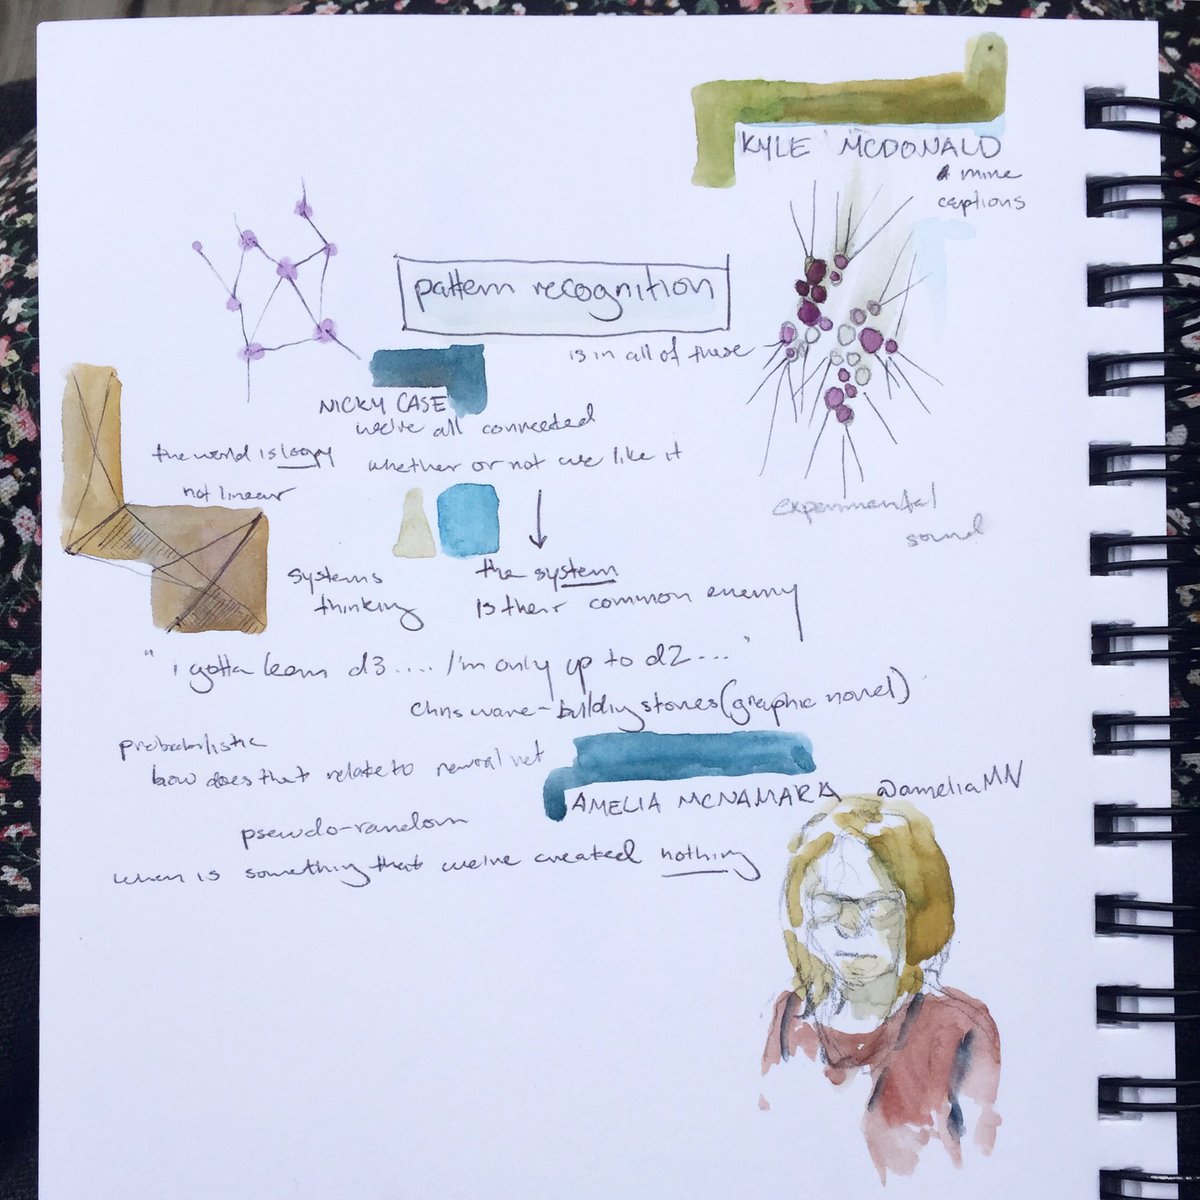 KYLE MCDONALD
mine
captions
pattern recognition
is in all of these
NICKY CASE
we're all connected
whether or not we like it
the world is loopy
not linear
experimental
sound
systems
thinking
the system
is their common enemy
"i gotta learn d3.... I'm only up to d2..."
chris ware - building stories (graphic novel)
probabilistic
how does that relate to neural net
AMELIA MCNAMARA @ameliaMN
pseudo-random
when is something that we've created nothing